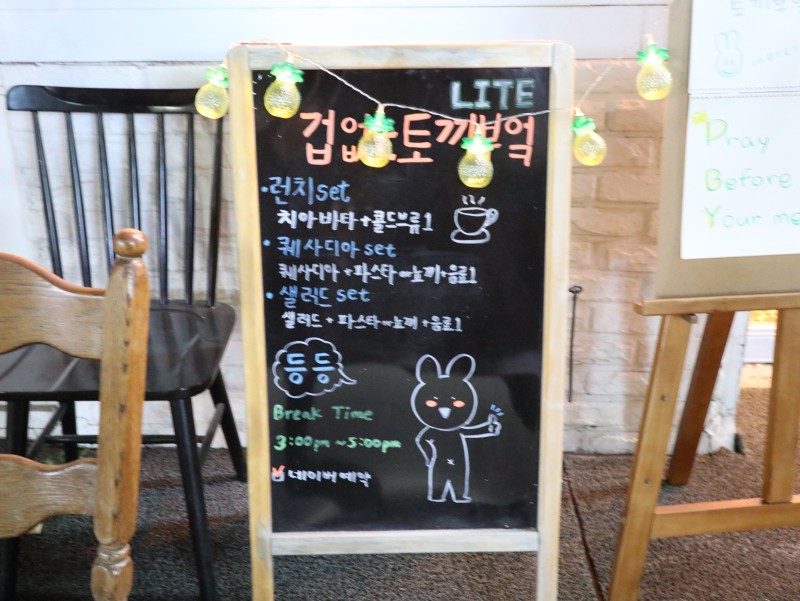 LITE
겁없는토끼부엌
·런치set
치아바타+콜드브류1
·퀘사디아 set
퀘사디아 + 파스타or뇨끼+음료1
·샐러드 set
샐러드 + 파스타or뇨끼 +음료1
등등
Break Time
3:00pm ~5:00pm
네이버예약
토끼부엌
Pray
Before
Your